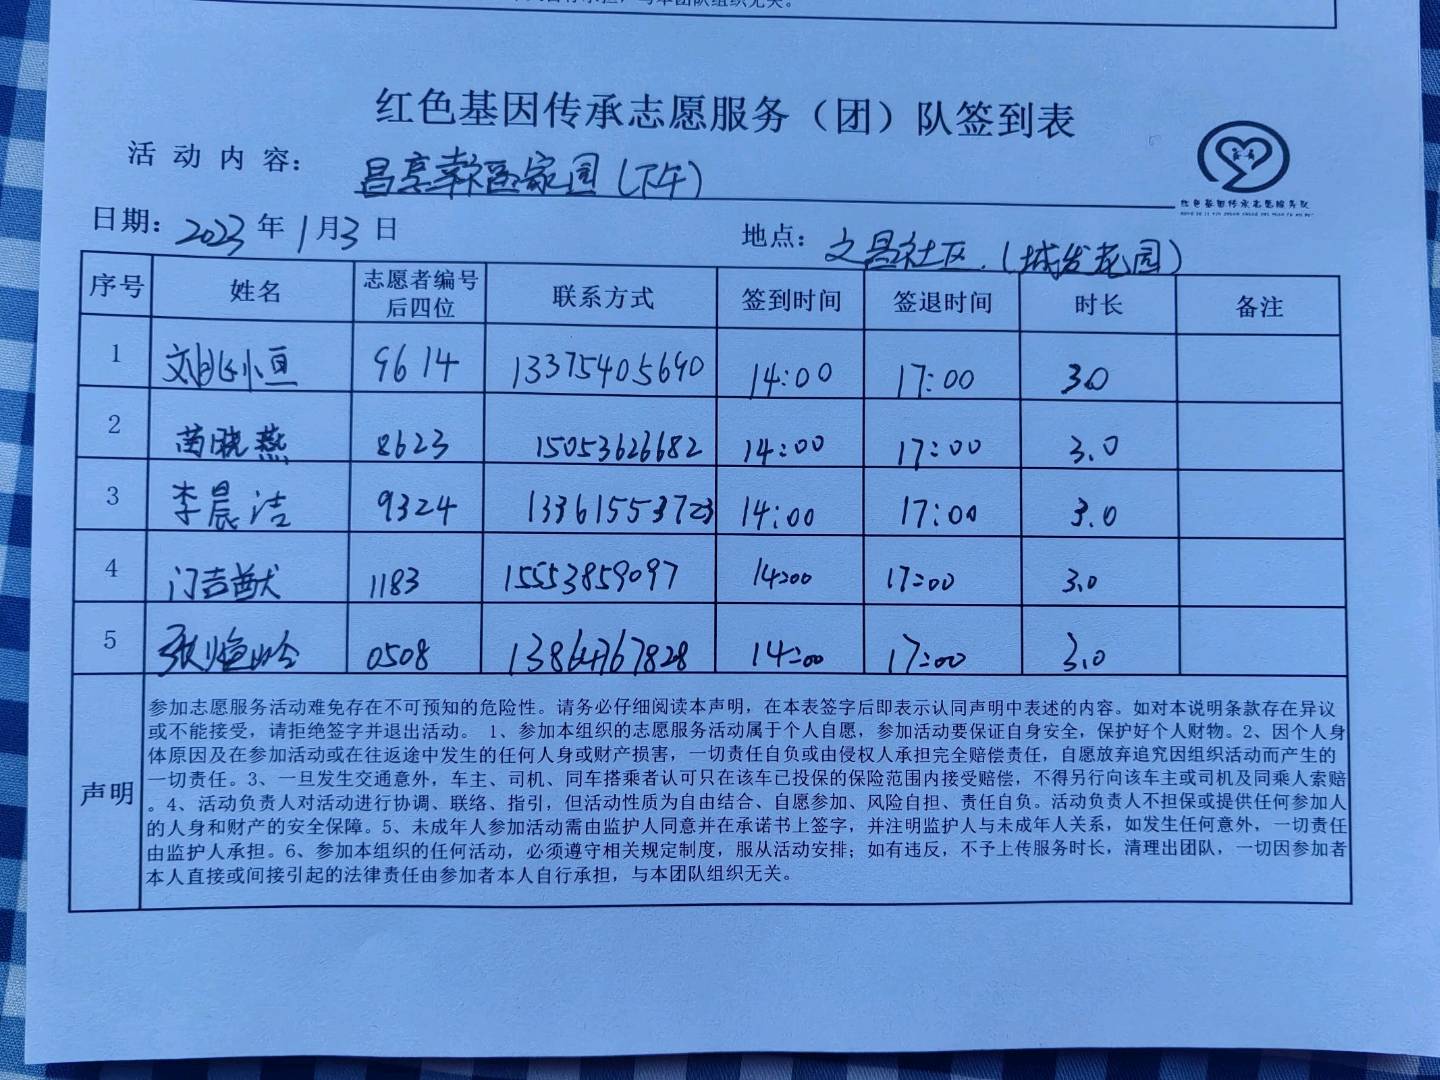 本人直接或间接引起的法律责任由参加者本人自行承担，与本团队组织无关。
红色基因传承志愿服务（团）队签到表
活动内容： 昌享幸福家园（下午）
红色基因传承志愿服务队
日期：2023年1月3日 地点：文昌社区.（城发花园）
序号 姓名 志愿者编号后四位 联系方式 签到时间 签退时间 时长 备注
1 刘兆小亘 9614 13375405690 14:00 17:00 3.0
2 苗晓燕 8623 15053626682 14:00 17:00 3.0
3 李晨洁 9324 13361553723 14:00 17:00 3.0
4 门吉猷 1183 15553859097 14:00 17:00 3.0
5 0508 13864767828 14:00 17:00 3.0
声明
参加志愿服务活动难免存在不可预知的危险性。请务必仔细阅读本声明，在本表签字后即表示认同声明中表述的内容。如对本说明条款存在异议
或不能接受，请拒绝签字并退出活动。 1、参加本组织的志愿服务活动属于个人自愿，参加活动要保证自身安全，保护好个人财物。2、因个人身
体原因及在参加活动或在往返途中发生的任何人身或财产损害，一切责任自负或由侵权人承担完全赔偿责任，自愿放弃追究因组织活动而产生的
一切责任。3、一旦发生交通意外，车主、司机、同车搭乘者认可只在该车已投保的保险范围内接受赔偿，不得另行向该车主或司机及同乘人索赔
。4、活动负责人对活动进行协调、联络、指引，但活动性质为自由结合、自愿参加、风险自担、责任自负。活动负责人不担保或提供任何参加人
的人身和财产的安全保障。5、未成年人参加活动需由监护人同意并在承诺书上签字，并注明监护人与未成年人关系，如发生任何意外，一切责任
由监护人承担。6、参加本组织的任何活动，必须遵守相关规定制度，服从活动安排；如有违反，不予上传服务时长，清理出团队，一切因参加者
本人直接或间接引起的法律责任由参加者本人自行承担，与本团队组织无关。